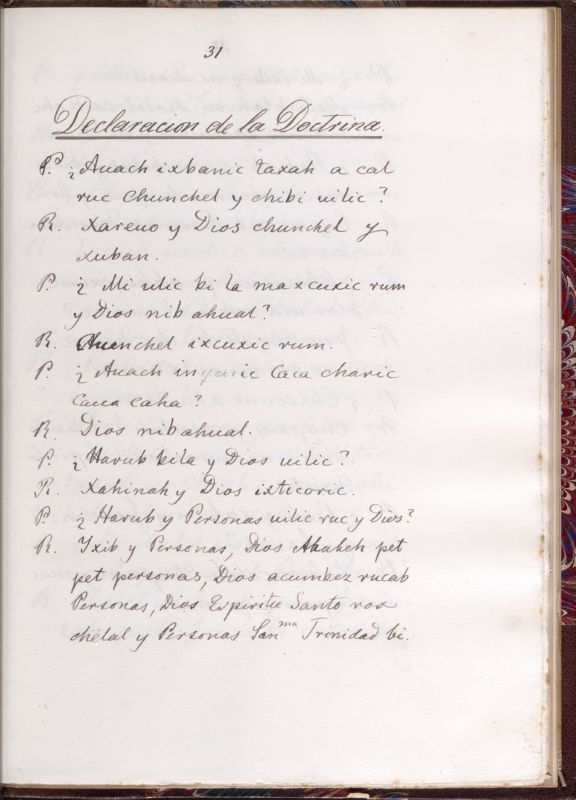 31
Declaracion de la Doctrina.
P.a ¿Anach ixbanic taxah a cal
ruc chunchel y chibi uilic?
R. Xareno y Dios chunchel y
xuban.
P. ¿Mi ulic bi la maxcuxic rum
y Dios nib ahual?
R. Chunchel ixcuxic rum.
P. ¿Anach inquic Caca charic
Caca caha?
R. Dios nib ahual.
P. ¿Harub bila y Dios uilic?
R. Xahinah y Dios ixticoric.
P. ¿Harub y Personas uilic ruc y Dios?
R. Yxib y Personas, Dios Akabeh pet
pet personas, Dios acumbez rucab
Personas, Dios Espiritu Santo rox
chelal y Personas San.ma Trinidad bi.